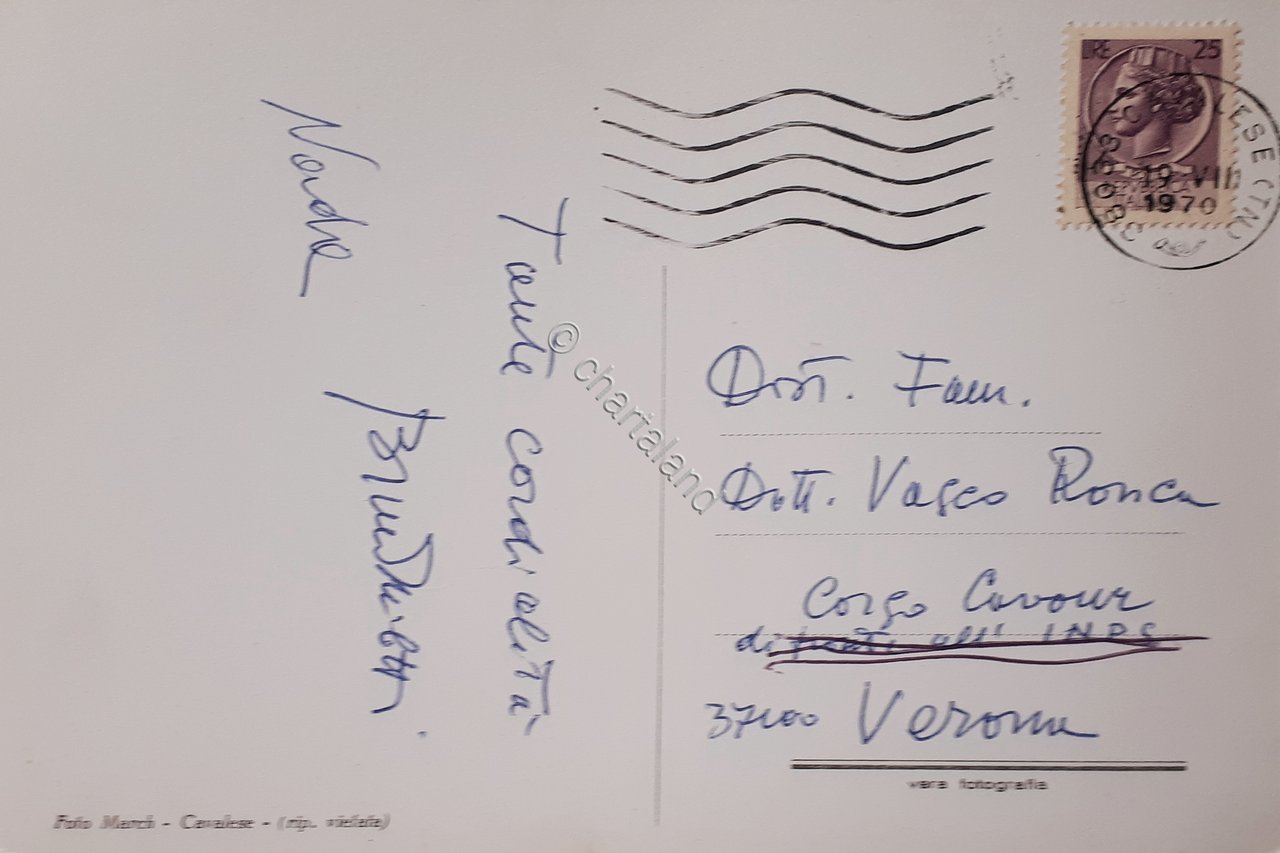 LIRE 25
38033 CAVALESE (TN)
19 VII
1970
Tante cordialità
Nadia
Dist. Fam.
Dott. Vasco Ronca
Corso Cavour
di fronte all' INPS
37100 Verona
vera fotografia
Foto March - Cavalese - (rip. vietata)
© chartaland